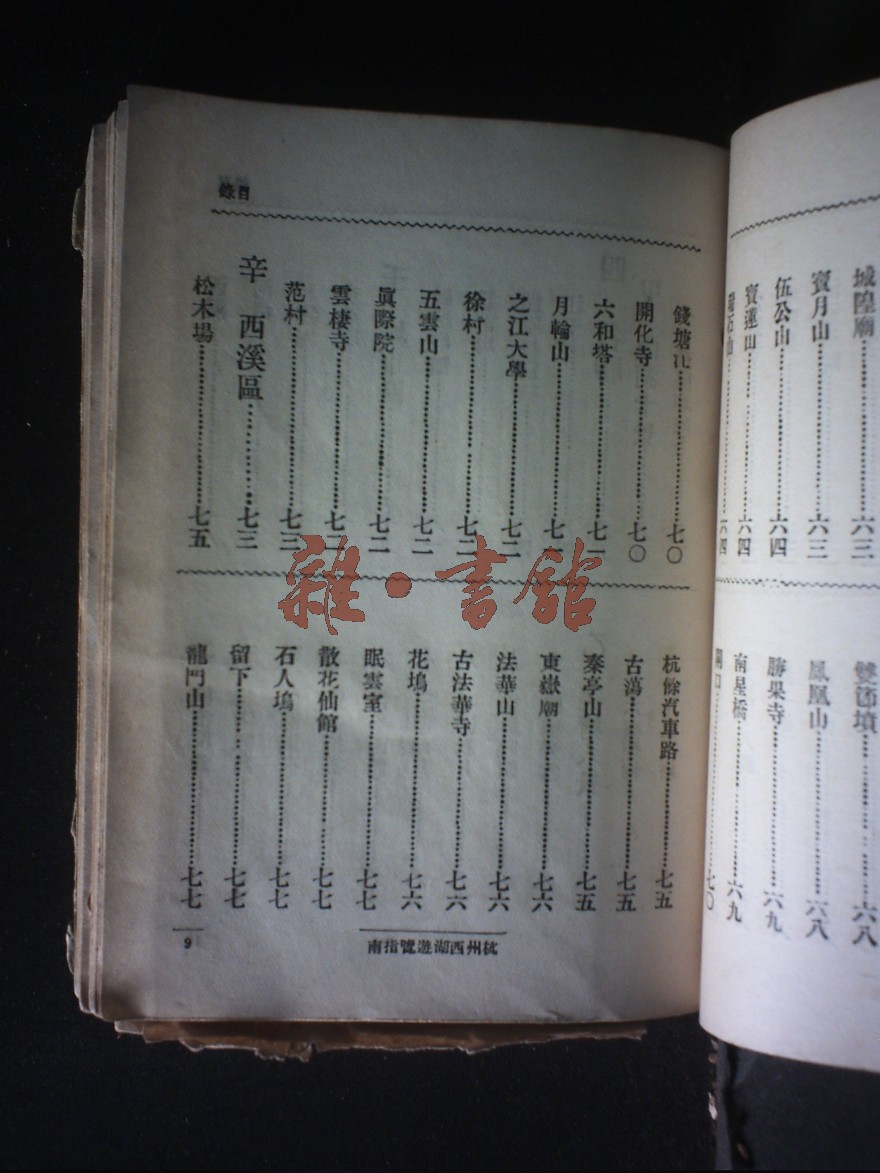 城隍廟……六三
寶月山……六三
伍公山……六四
寶蓮山……六四
石山……六四
雙節墳……六八
鳳凰山……六八
勝果寺……六九
南星橋……六九
口……七〇
目錄
錢塘江……七〇
開化寺……七〇
六和塔……七一
月輪山……七
之江大學……七二
徐村……七二
五雲山……七二
眞際院……七二
雲棲寺……七二
范村……七三
辛 西溪區……七三
松木場……七五
杭餘汽車路……七五
古蕩……七五
秦亭山……七五
東嶽廟……七六
法華山……七六
古法華寺……七六
花塢……七六
眠雲室……七七
散花仙館……七七
石人塢……七七
留下……七七
龍門山……七七
杭州西湖遊覽指南
9
雜·書館